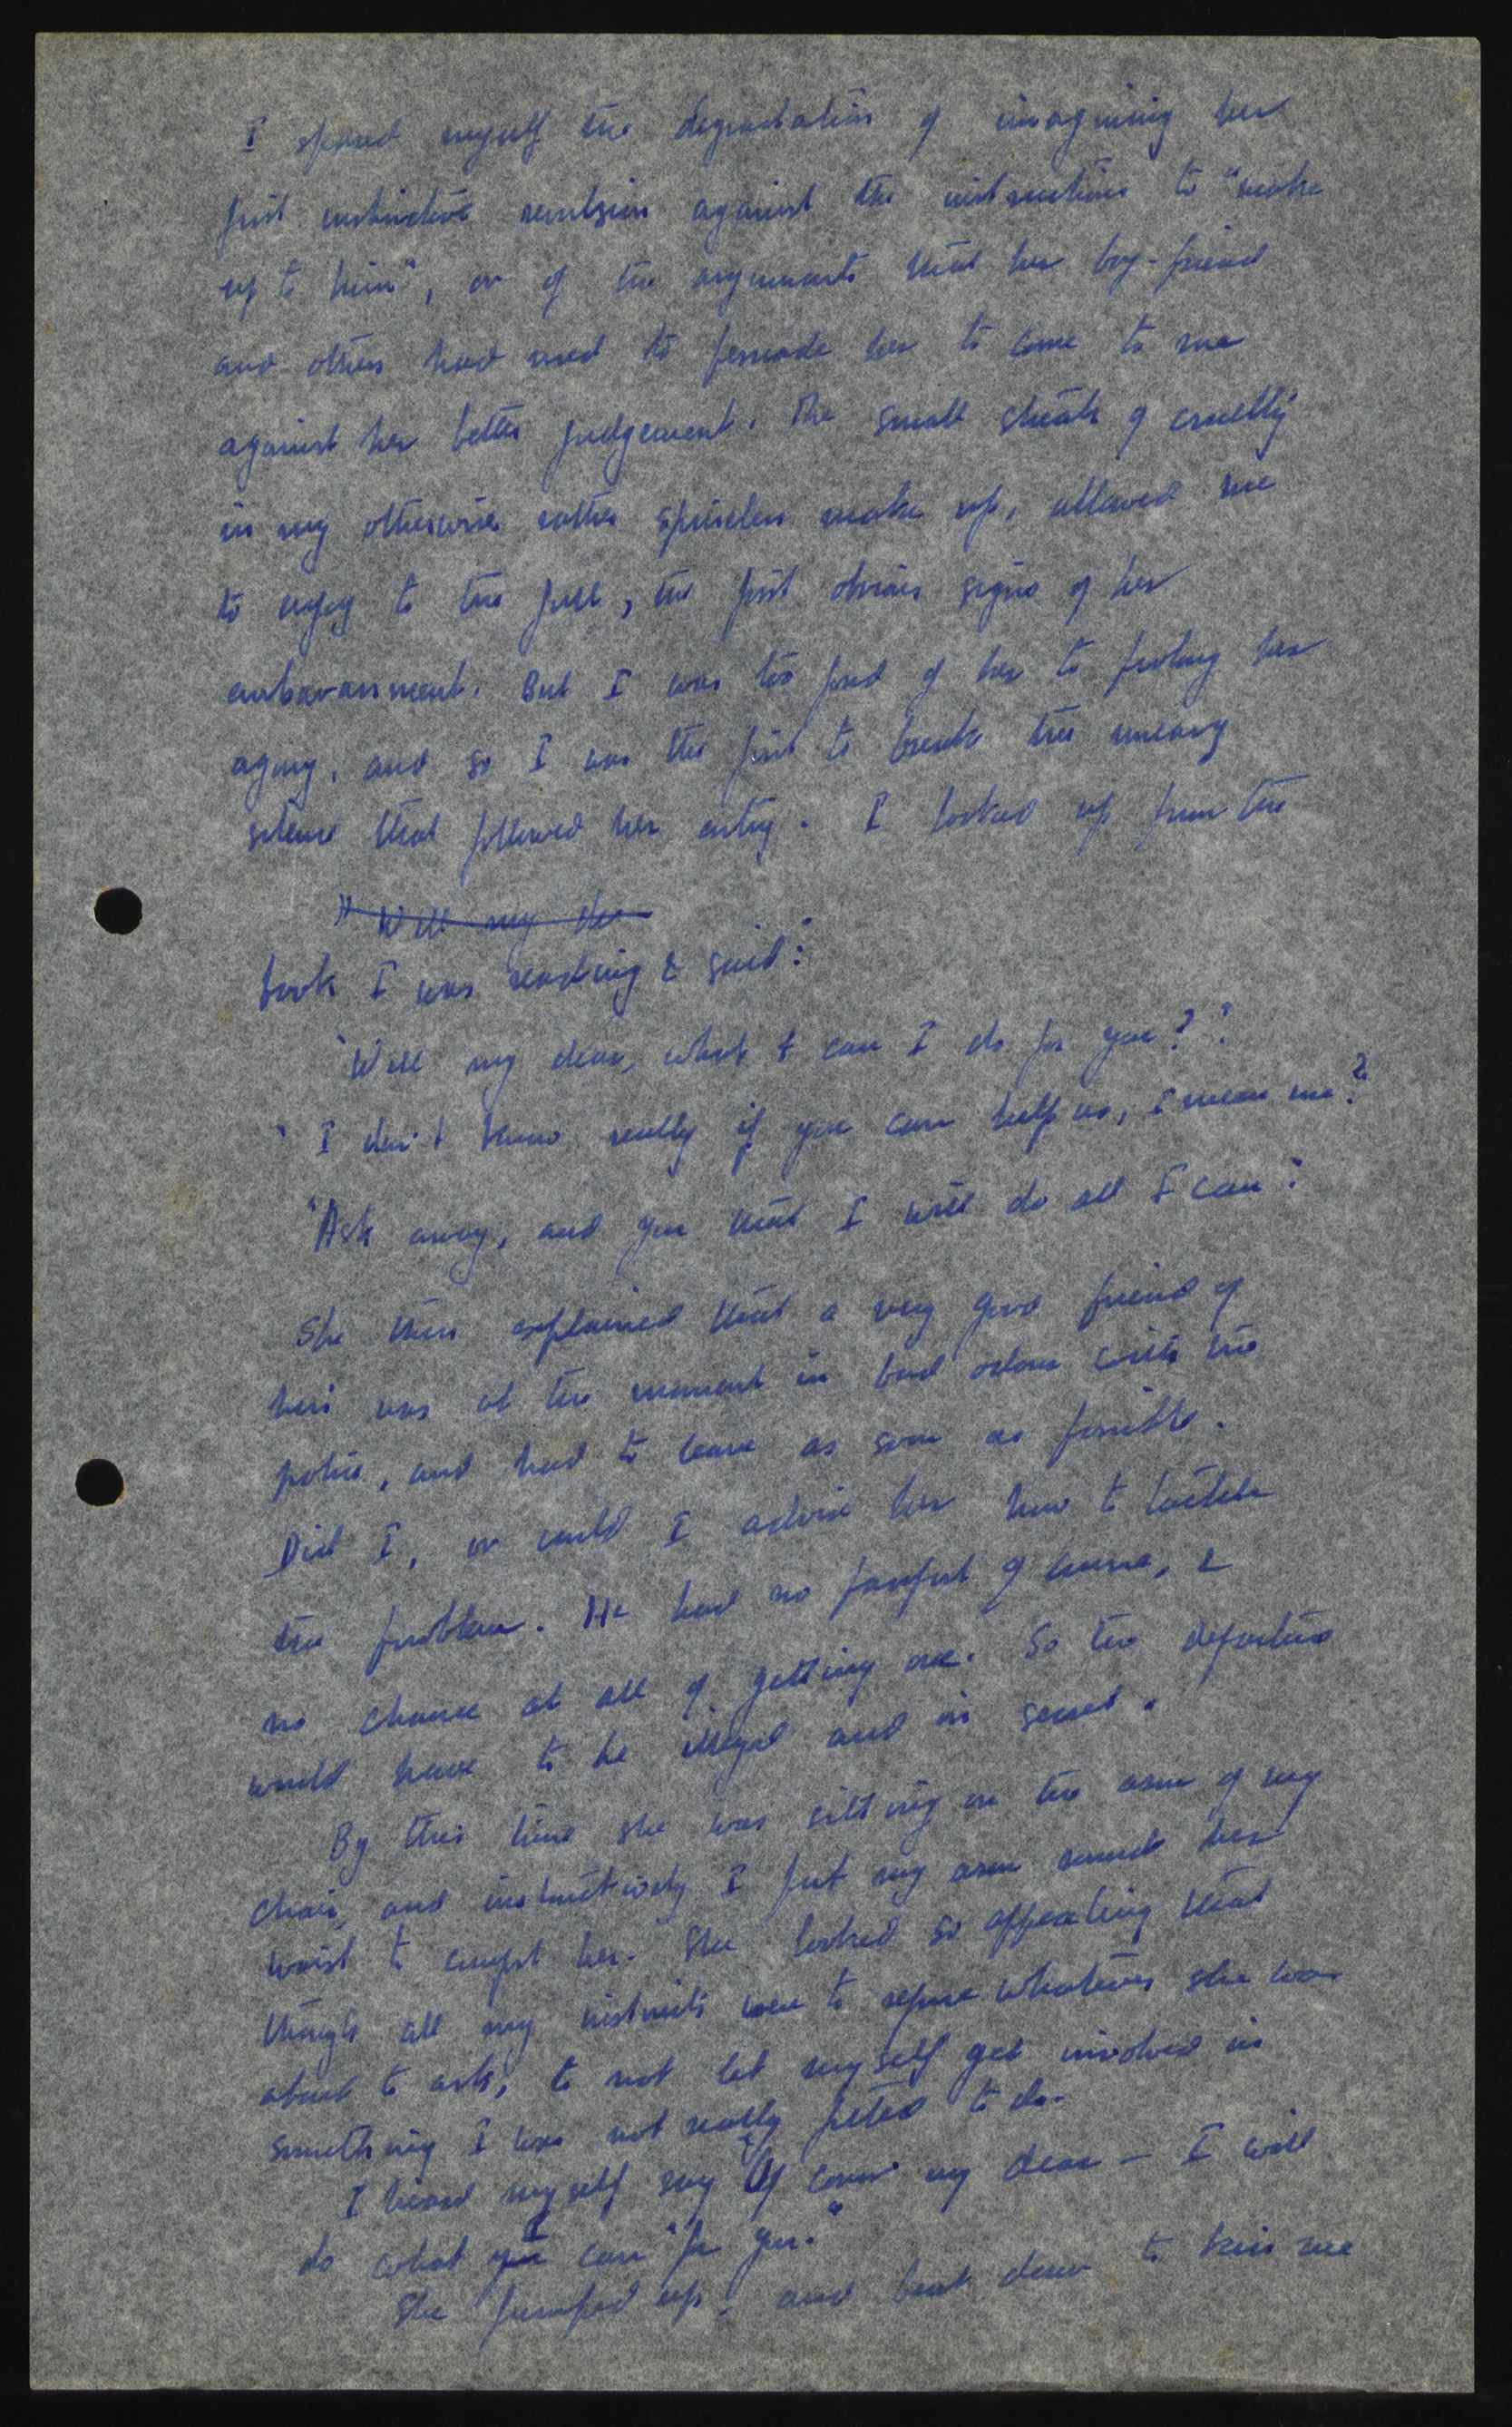 I spared myself the degradation of imagining her
first instinctive revulsion against the instructions to "make
up to him", or of the arguments that her boy-friend
and others had used to persuade her to come to me
against her better judgement. The small streak of cruelty
in my otherwise rather spineless make up, allowed me
to enjoy to the full, the first obvious signs of her
embarrassment. But I was too fond of her to prolong her
agony, and so I was the first to break the uneasy
silence that followed her entry. I looked up from the
" Well my dea
book I was reading & said:
"Well my dear, what can I do for you?"
" I don't know really if you can help us, I mean me?
"Ask away, and you that I will do all I can".
She then explained that a very good friend of
hers was at the moment in bad odour with the
police, and had to leave as soon as possible.
Did I, or could I advise her how to tackle
the problem. He had no passport of course, &
no chance at all of getting one. So the departure
would have to be illegal and in secret.
By this time she was sitting on the arm of my
chair, and instinctively I put my arm round her
waist to comfort her. She looked so appealing that
though all my instincts were to refuse whatever she was
about to ask, to not let myself get involved in
something I was not really fitted to do.
I heard myself say "Of course my dear — I will
do what I can for you."
She jumped up, and bent down to kiss me